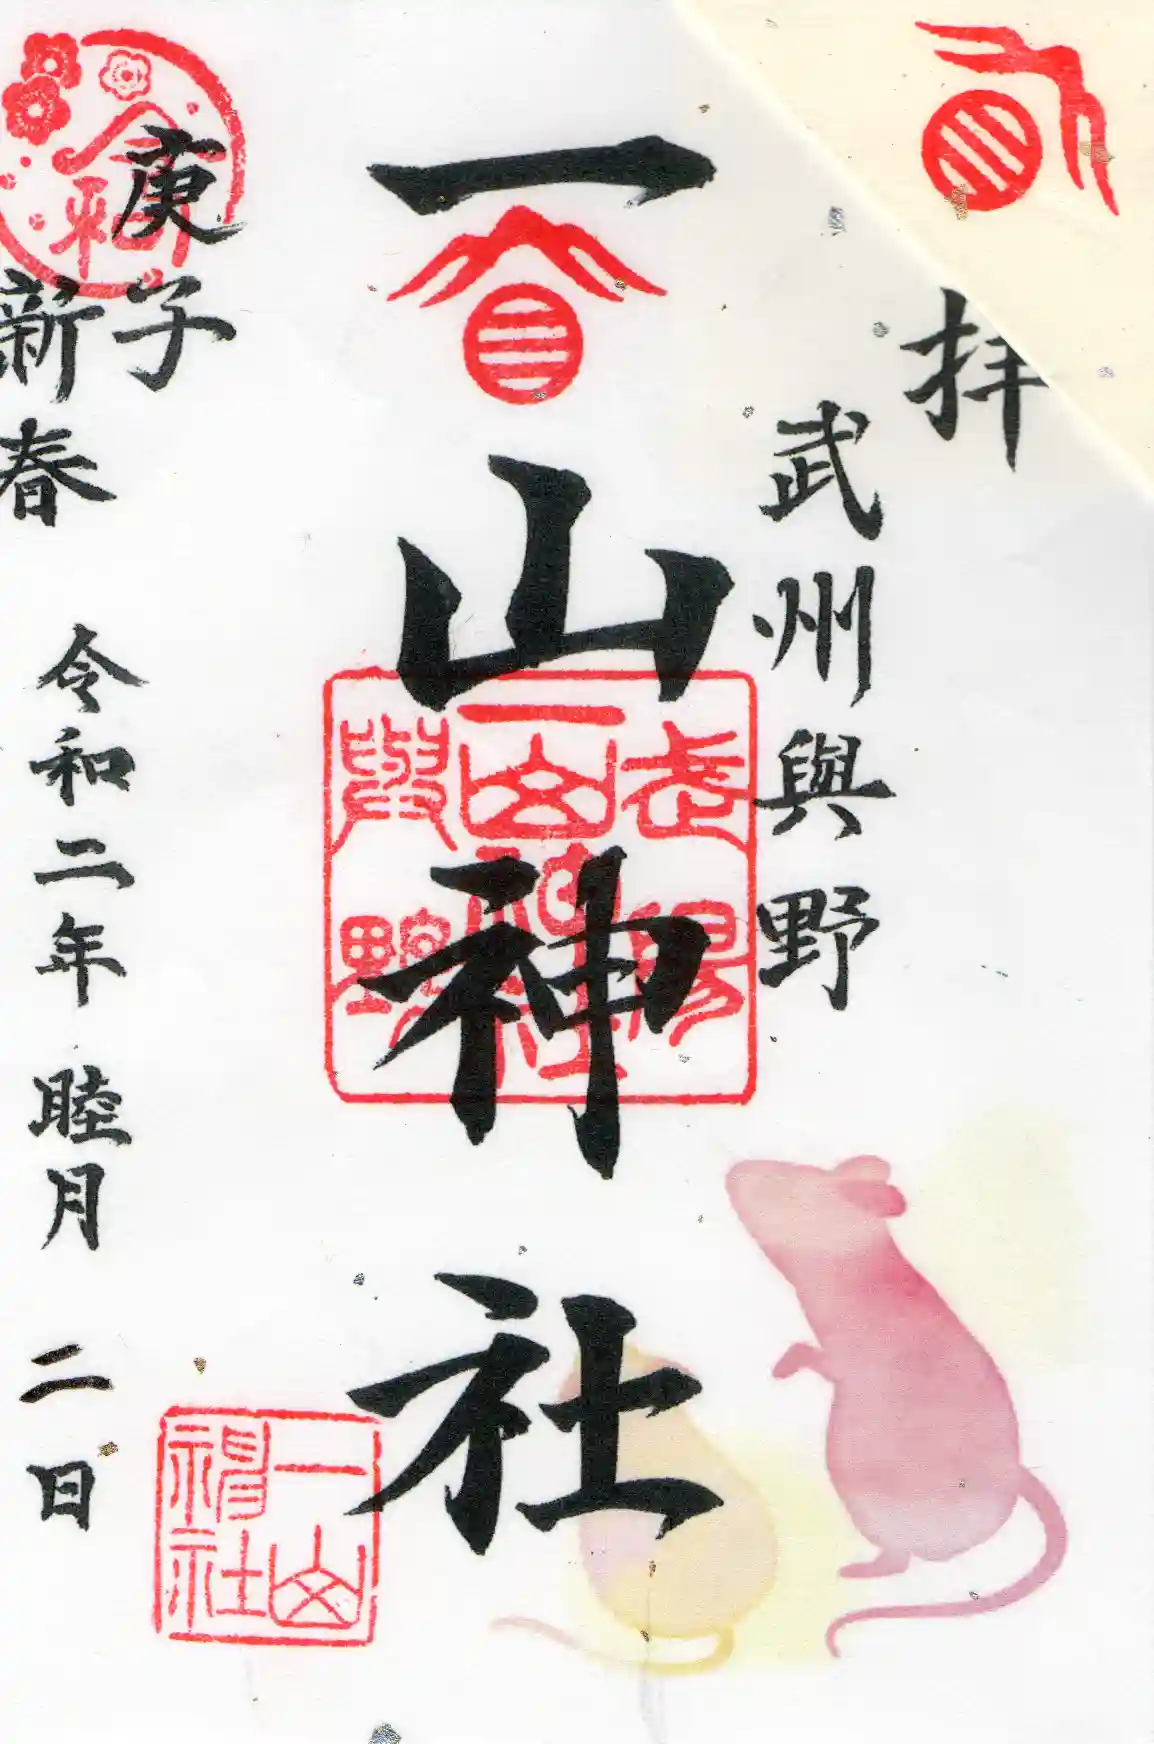 拝
武州與野
一山神社
武陽
一山神社
與野
一山
神社
庚子
新春
令和二年 睦月 二日